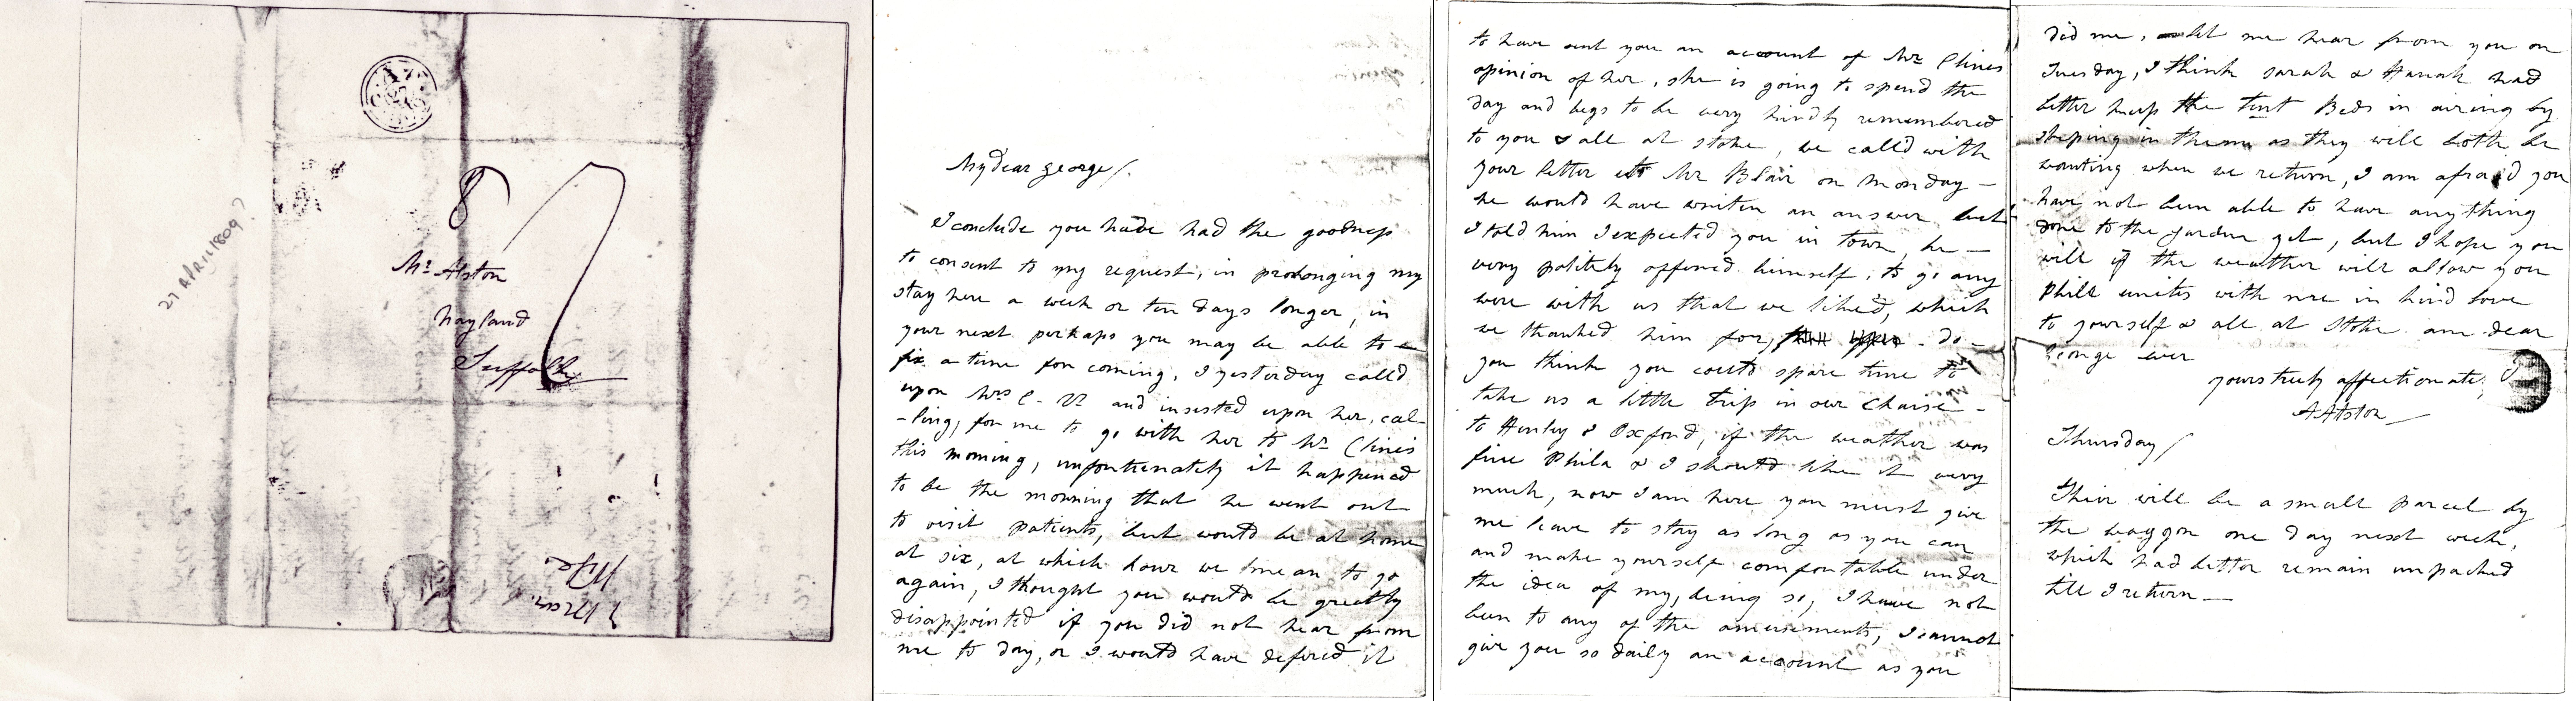 27 APRIL 1809?
8
Mr Alston
Nayland
Suffolk
My dear George/.
I conclude you have had the goodness
to consent to my request, in prolonging my
stay here a week or ten days longer, in
your next perhaps you may be able to
fix a time for coming, I yesterday called
upon Mrs C- and insisted upon her, cal-
-ling, for me to go with her to Mr Clines
this morning, unfortunately it happened
to be the morning that he went out
to visit patients, but would be at home
at six, at which hour we mean to go
again, I thought you would be greatly
disappointed if you did not hear from
me to day, or I would have defered it
to have sent you an account of Mr Clines
opinion of her, she is going to spend the
day and begs to be very kindly remembered
to you & all at stoke, we calld with
your letter to Mr Blair on Monday -
he would have writen an answer but
I told him I expected you in town, he -
very politely offered himself, to go any
were with us that we liked, which
we thanked him for, - do -
you think you could spare time to
take us a little trip in our Chaise -
to Henley & Oxford, if the weather was
fine Phila & I should like it very
much, now I am here you must give
me leave to stay as long as you can
and make yourself comfortable under
the idea of my, being so, I have not
been to any of the amusements, I cannot
give you so daily an account as you
did me, let me hear from you on
Tuesday, I think Sarah & Hanah had
better keep the Tent Beds in airing by
sleping in them as they will both be
wanting when we return, I am afraid you
have not been able to have anything
done to the garden yet, but I hope you
will if the weather will allow you
Phill unites with me in kind love
to yourself & all at Stoke am dear
George ever
yours truly affectionate
A Alston
Thursday/
Their will be a small parcel by
the waggon one day next week,
which had better remain unpacked
till I return -